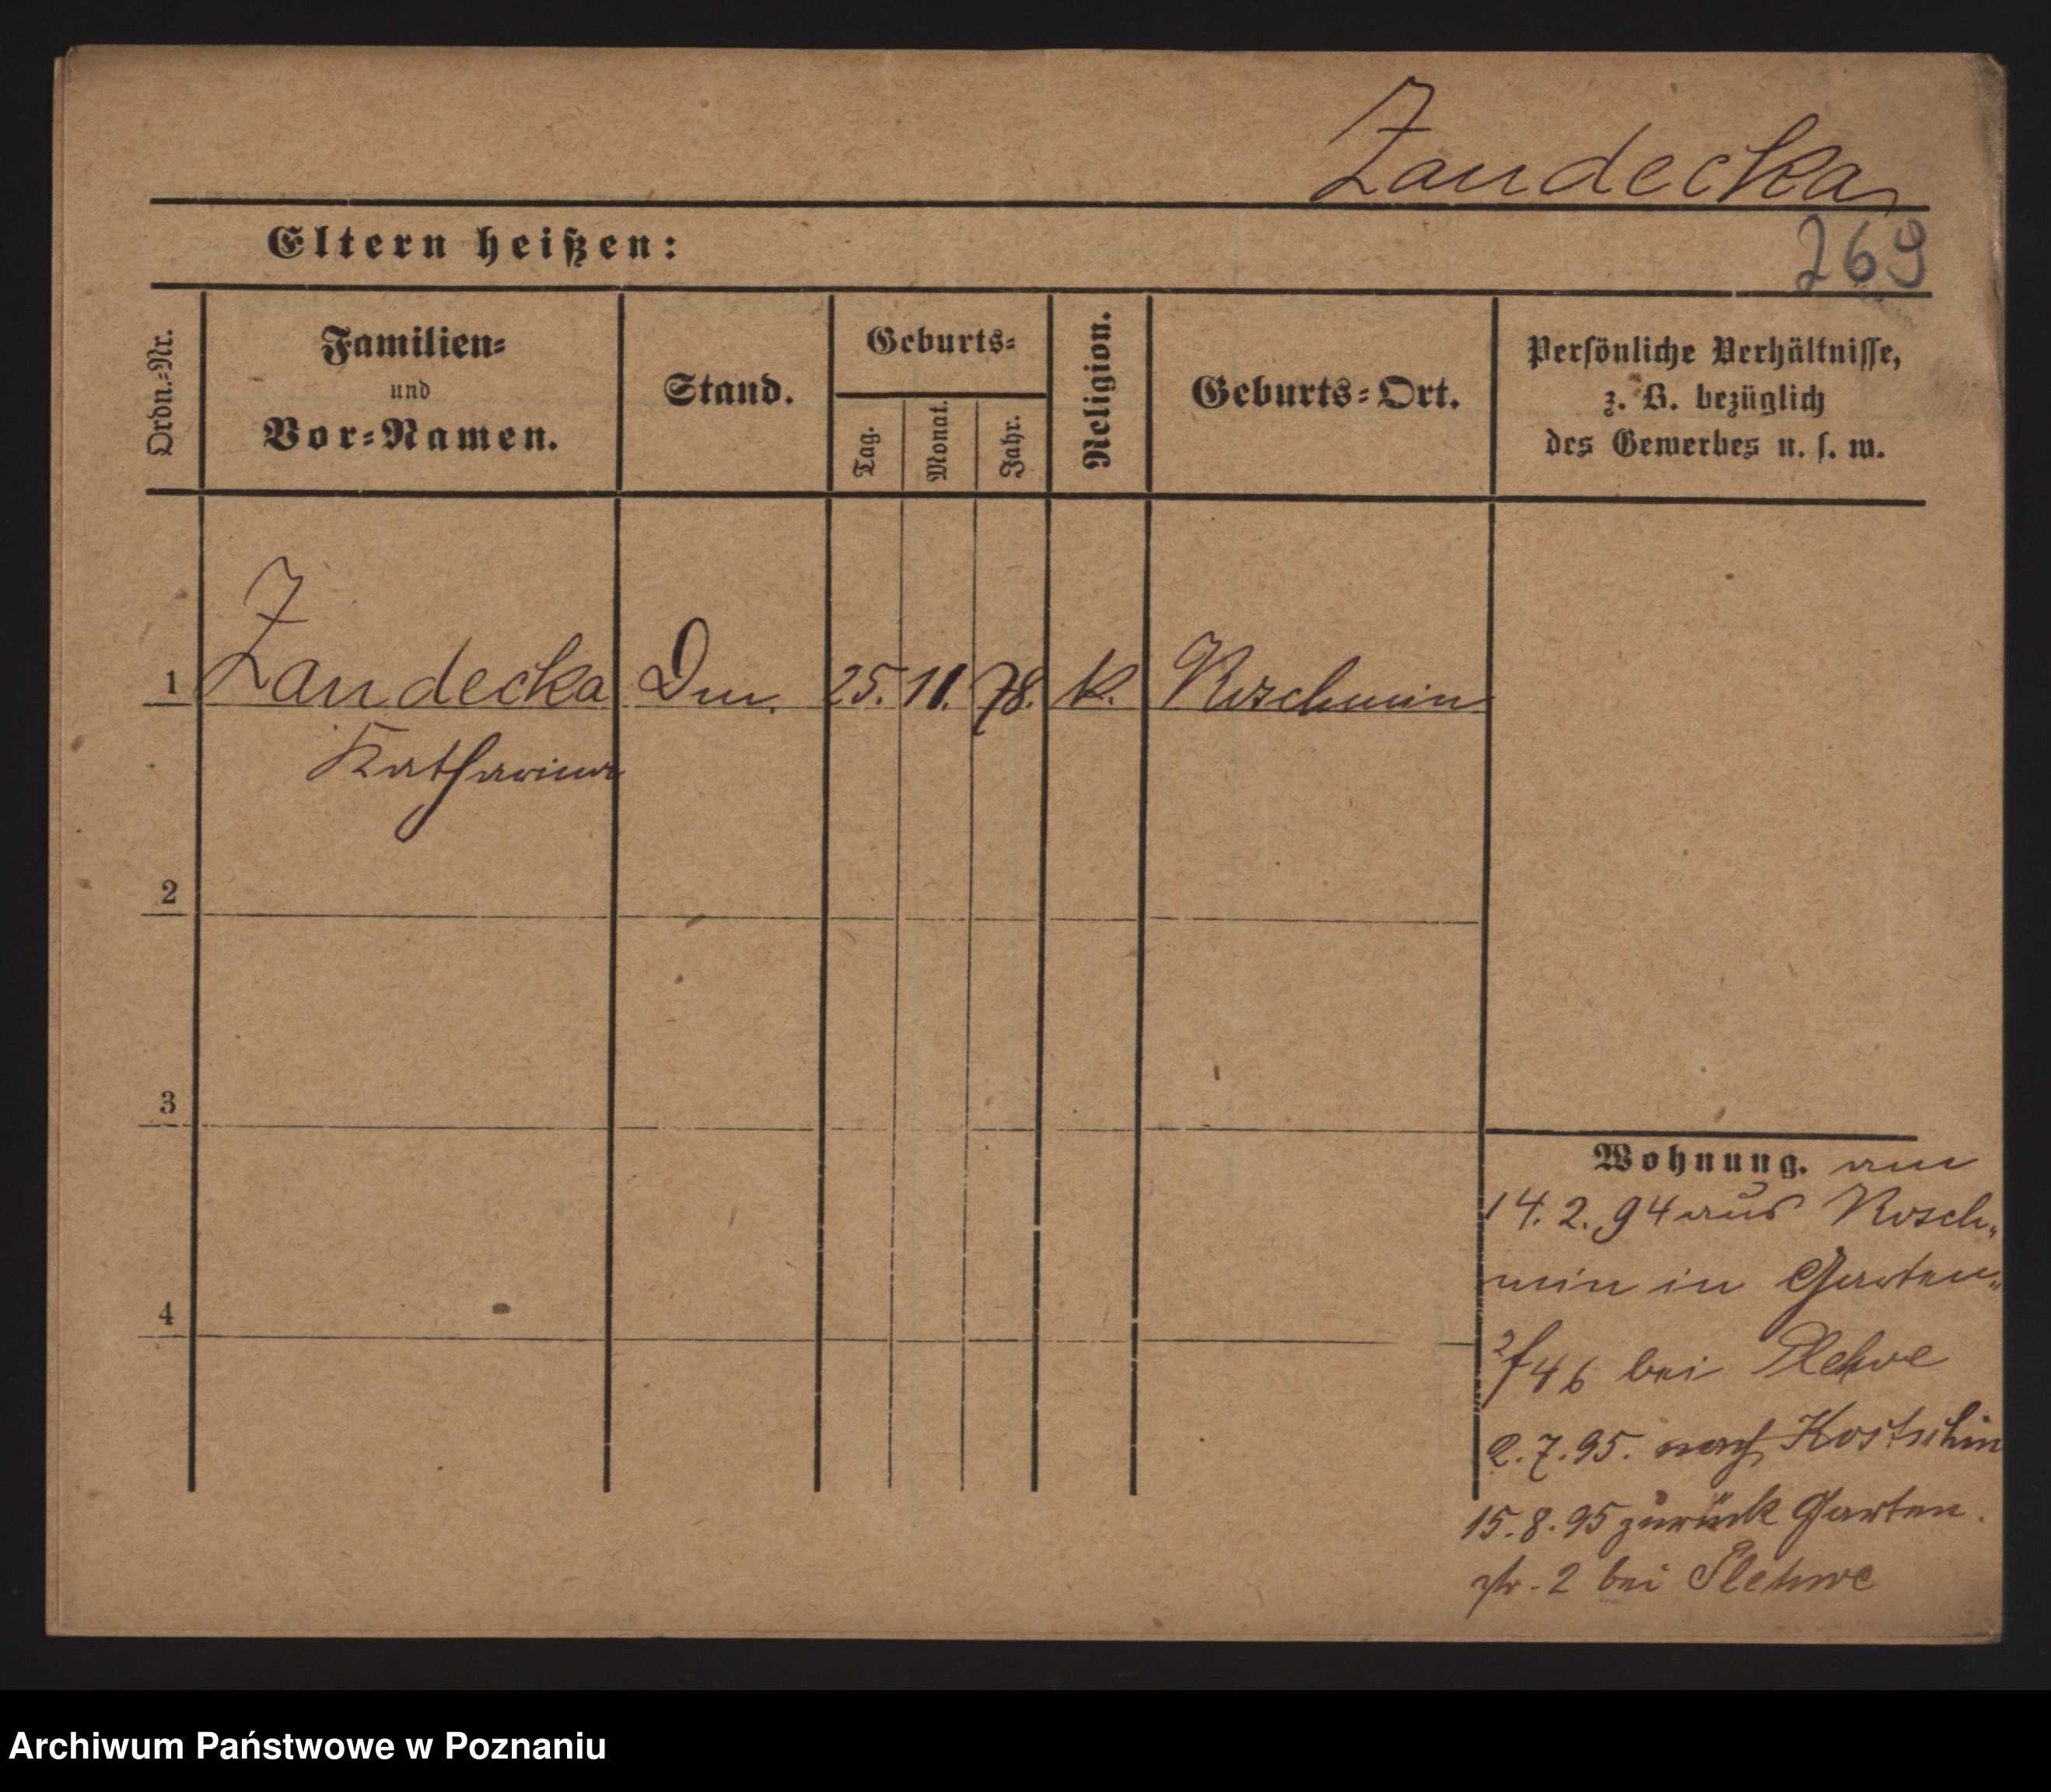 Zandecka
Eltern heißen:
269
Ordn.=Nr.
Familien=
und
Vor=Namen.
Stand.
Geburts=
Tag.
Monat.
Jahr.
Religion.
Geburts=Ort.
Persönliche Verhältnisse,
z. B. bezüglich
des Gewerbes u. s. w.
1 Zandecka Dm. 25. 11. 78. k. Koschmin
Katharina
2
3
4
Wohnung. am
14.2.94 aus Kosch„
min in Garten„
bei Plehwe
2.7.95. nach Kostschin
15.8.95 zurück Garten.
str. 2 bei Plehwe
Archiwum Państwowe w Poznaniu